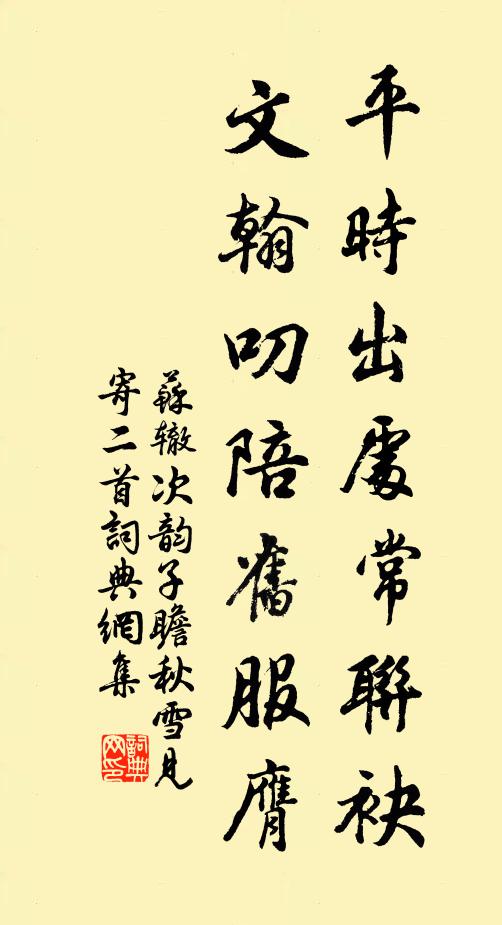 平時出處常聯袂
文翰叨陪舊服膺
蘇轍次韵子瞻秋雪見
寄二首詞典網集
詞典
网印